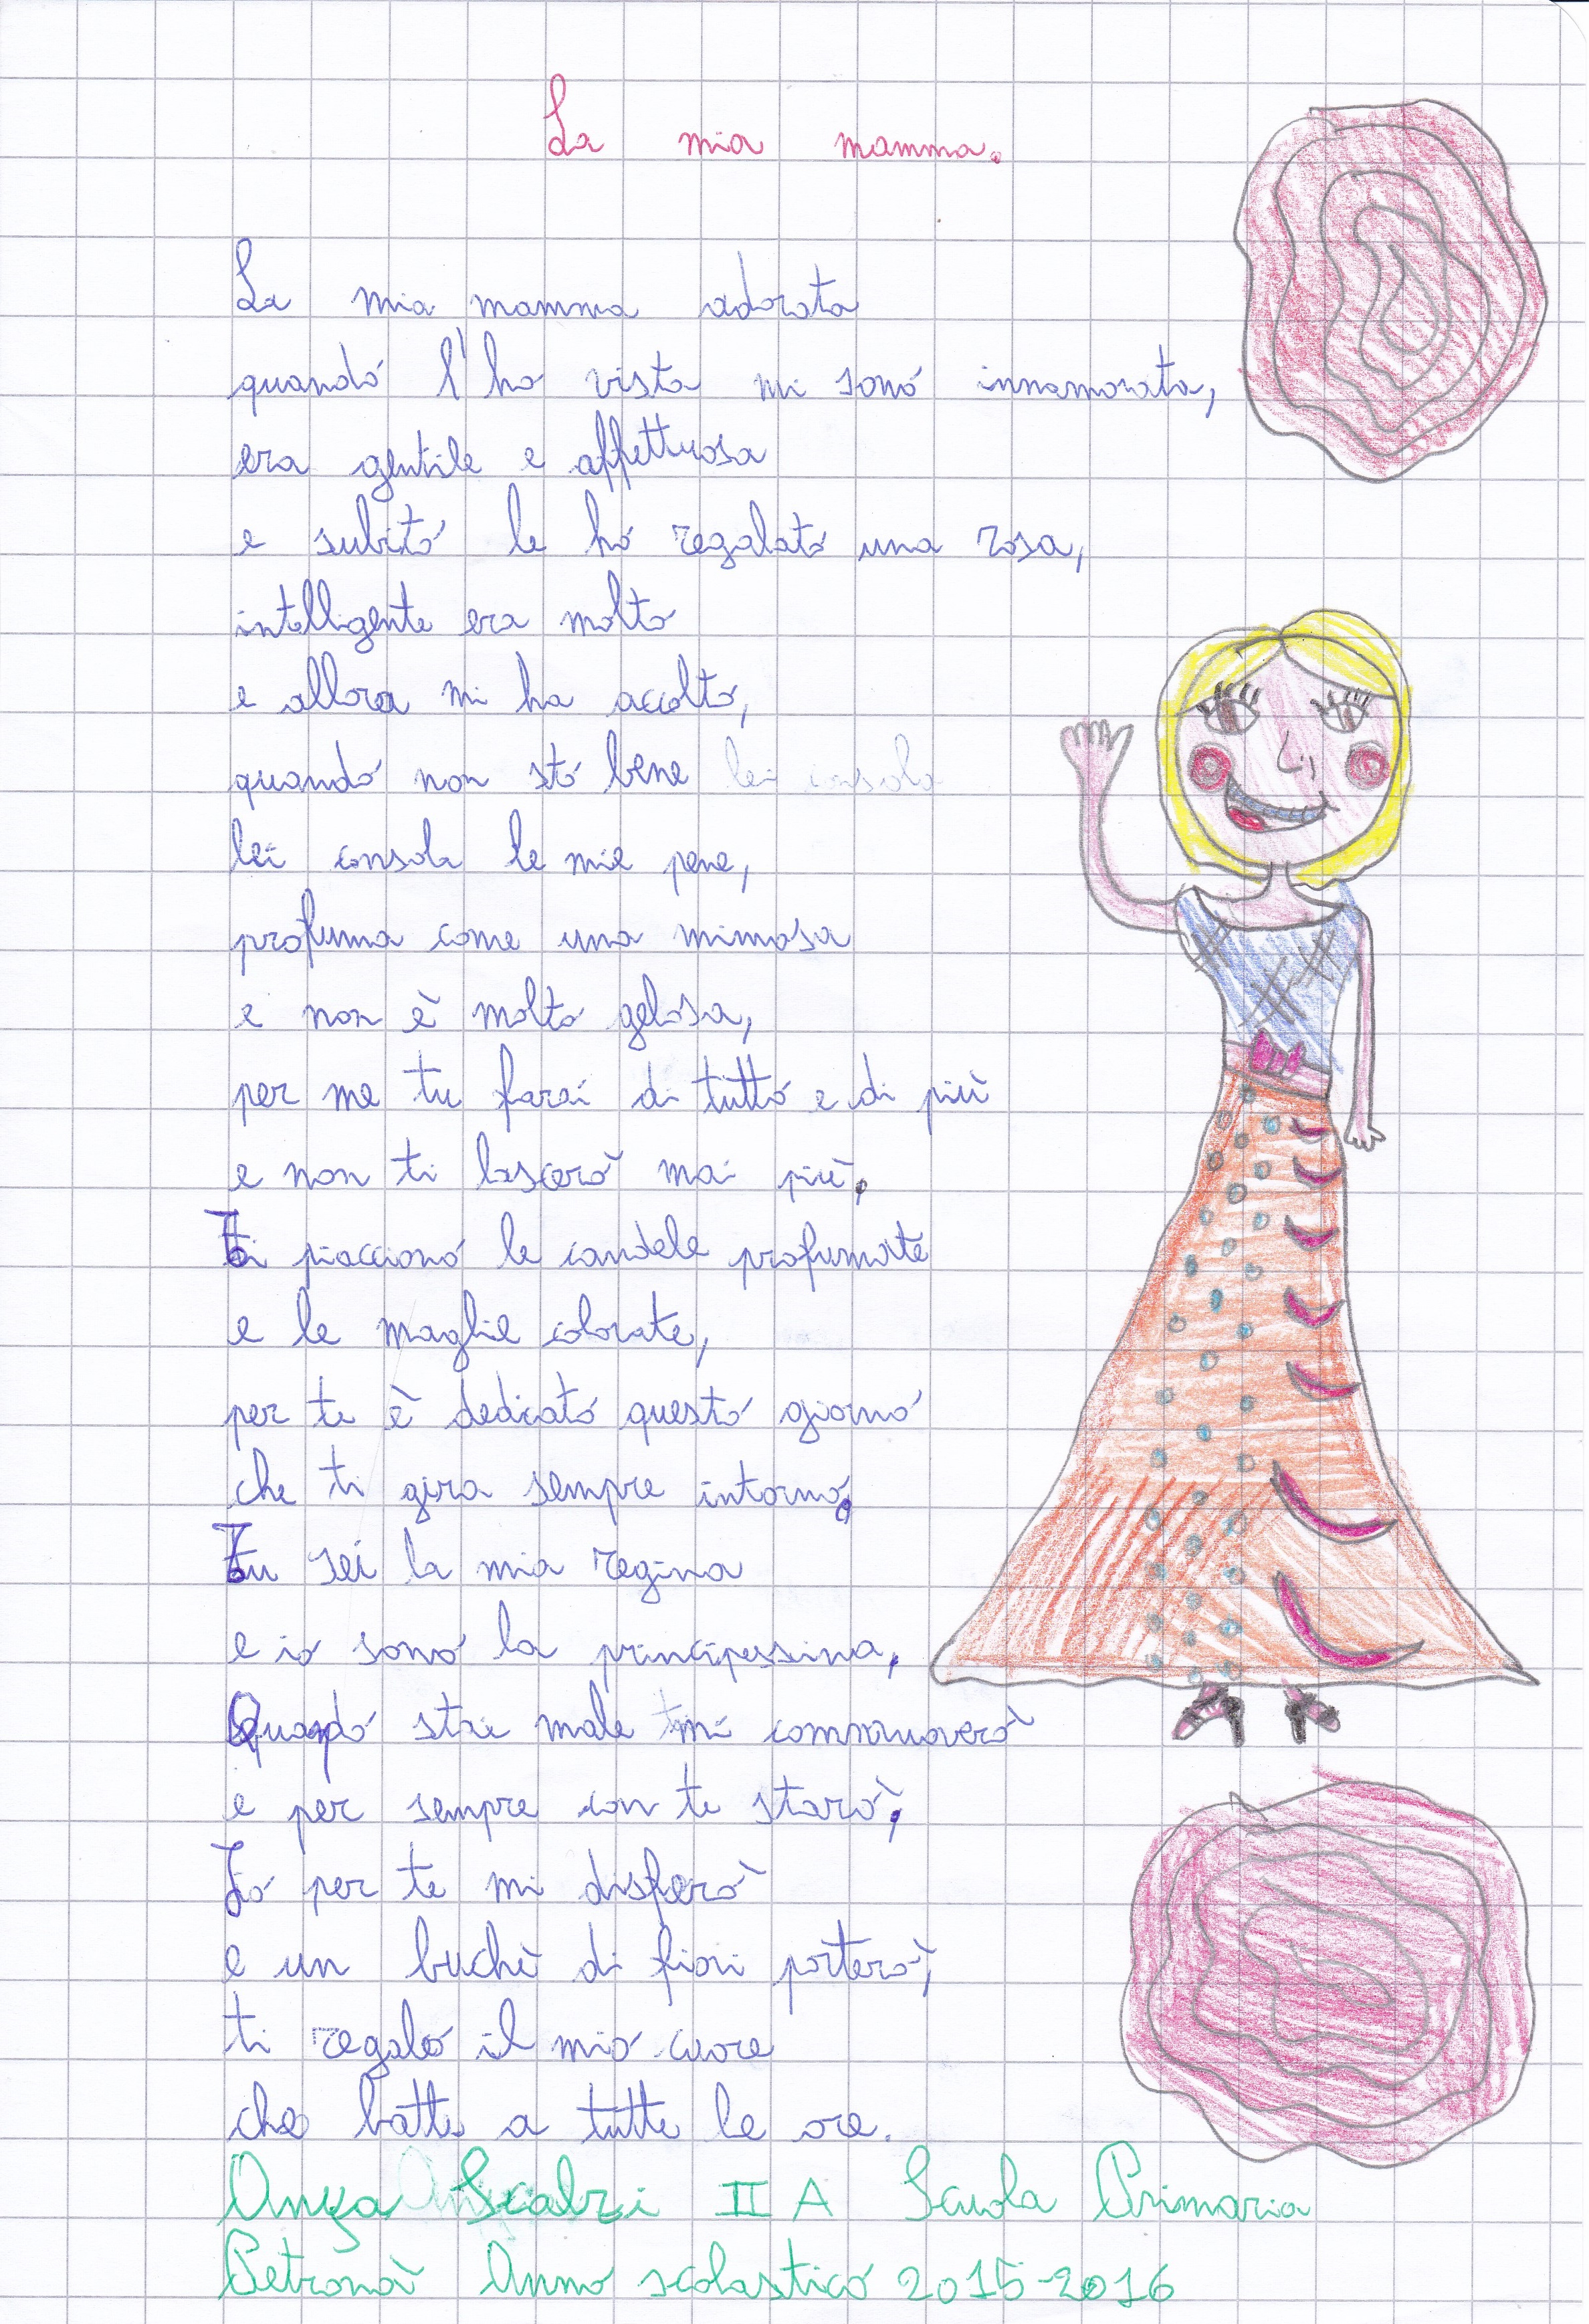 La mia mamma.
La mia mamma adorata
quando l'ho vista mi sono innamorata,
era gentile e affettuosa
e subito le ho regalato una rosa,
intelligente era molto
e allora mi ha accolto,
quando non sto bene lei consola
lei consola le mie pene,
profuma come una mimosa
e non è molto gelosa,
per me tu farei di tutto e di più
e non ti lascerò mai più.
Ti piacciono le candele profumate
e le maglie colorate,
per te è dedicato questo giorno
che ti gira sempre intorno.
Tu sei la mia regina
e io sono la principessina,
Quando stai male mi commuoverò
e per sempre con te starò,
Io per te mi disferò
e un buchè di fiori porterò,
ti regalo il mio cuore
che batte a tutte le ore.
Scalzi II A Scuola Primaria
Petronà Anno scolastico 2015-2016